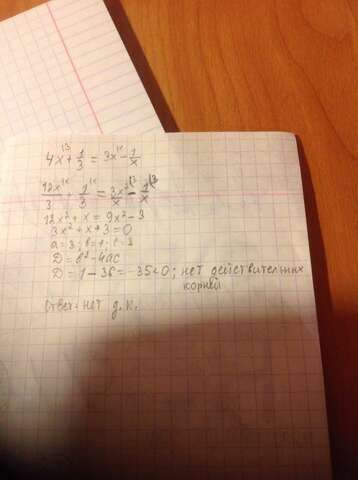 4x + 1/3 = 3x - 1/x
12x/3 + 1/3 = 3x²/x - 1/x
12x² + x = 9x² - 3
3x² + x + 3 = 0
a = 3; b = 1; c = 3
D = b² - 4ac
D = 1 - 36 = -35 < 0; нет действительных
корней
Ответ: нет д. к.